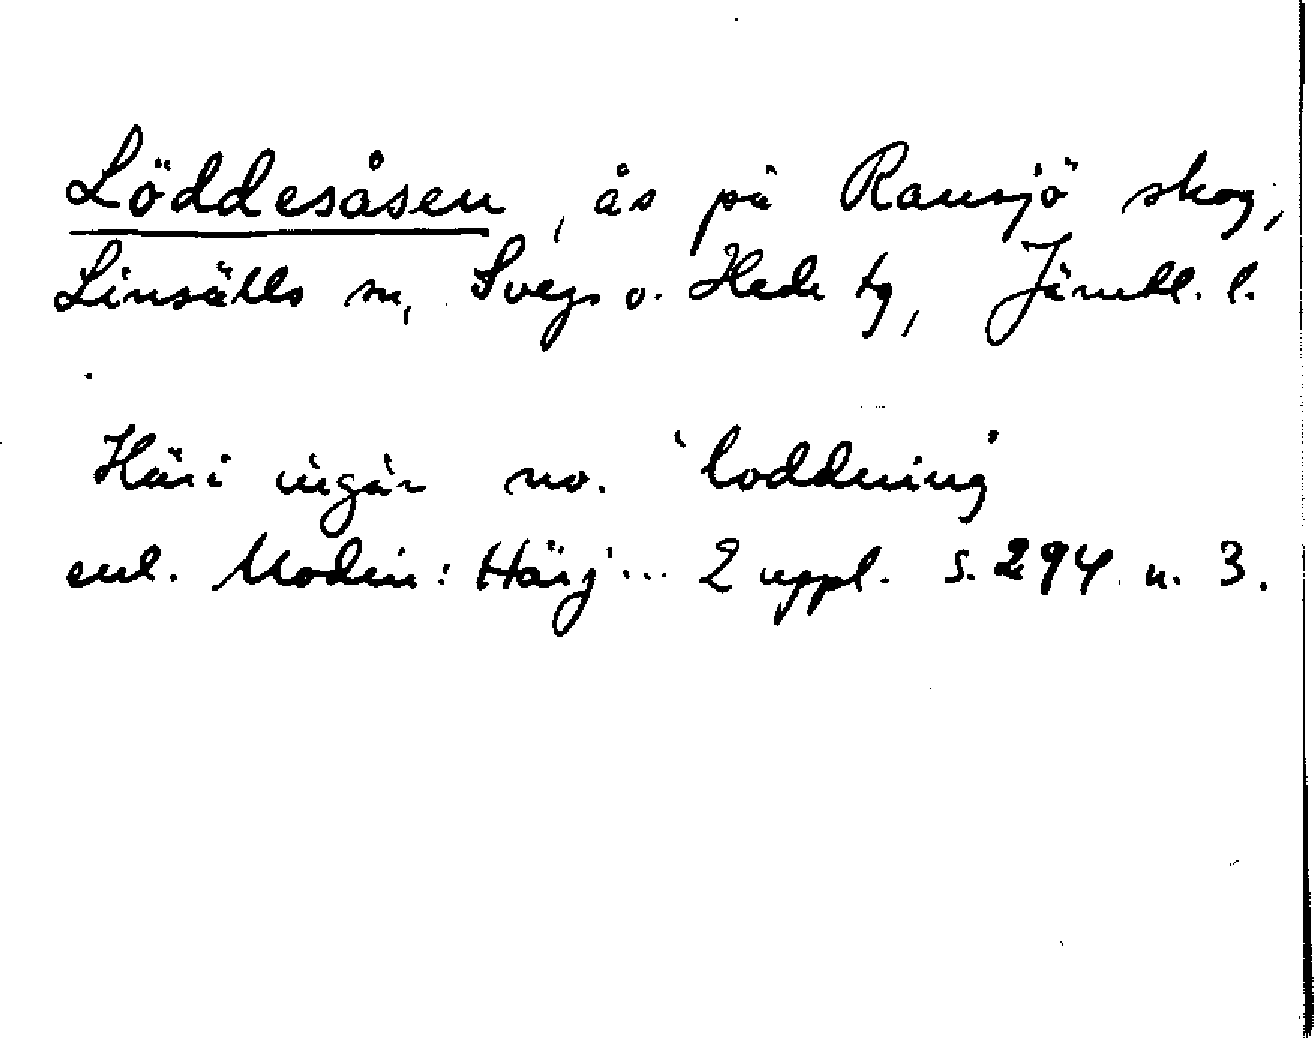 Löddesåsen, ås på Ransjö skog,
Linsälls sn, Svegs o. Hede tg, Jämtl. l.
Häri ingår no. 'loddning'
enl. Modin: Härj... 2 uppl. s. 294 n. 3.